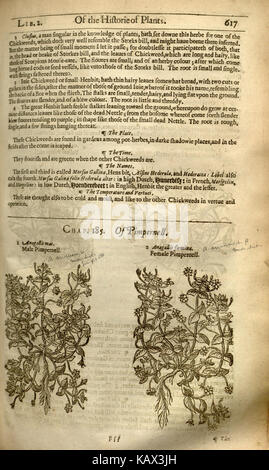 LIB. 2. Of the Historie of Plants. 617
3 Clusius, a man singular in the knowledge of plants, hath set downe this herbe for one of the
Chickweeds, which doth very well resemble the Storks bill, and might have beene there inserted.
But the matter being of small moment I let it passe; for doubtlesse it participateth of both, that
is, the head or beake of Storkes bill, and the leaves of Chickweed, which are long and hairy, like
those of Scorpions Mouse-eare. The floures are small, and of an herby colour; after which come
long horned cods or seed vessels, like unto those of the Storks bill. The root is small and single,
with strings fastened thereto.
4 Ivie Chickweed or small Henbit, hath thin hairy leaves somewhat broad, with two cuts or
gashes in the sides, after the manner of those of ground Ivie,
the backe of a Bee when she flieth. The stalks are small, tender, hairy, and lying flat upon the ground.
The floures are slender, and of a blew colour. The root is little and threddy.
5 The great Henbit hath feeble stalkes leaning toward the ground, whereupon do grow at certaine
distances leaves like those of the dead Nettle; from the bosome whereof come forth slender
blew floures tending to purple; in shape like those of the small dead Nettle. The root is tough,
single, and a few strings hanging thereat.
¶ The Place.
These Chickweeds are found in gardens among pot-herbes, in darke shadowie places, and in the
fields after the corne is reaped.
¶ The Time.
They flourish and are greene when the other Chickweeds are.
¶ The Names.
The first and third is called Morsus Gallinæ, Hens bit, Alsine Hederula, and Hederacea: Lobel also
calls the fourth, Morsus Gallinæ folio Hederulæ alter: in high Dutch,
in low Dutch, in English, Henbit the greater and the lesser.
¶ The Temperature and Vertues.
These are thought also to be cold and moist, and like to the other Chickweeds in vertue and
operation.
CHAP. 185. Of Pimpernell.
1 Anagallis mas. 2 Anagallis fœmina.
Male Pimpernell. Female Pimpernell.
Fff ¶ The
alamy
KAX3JH